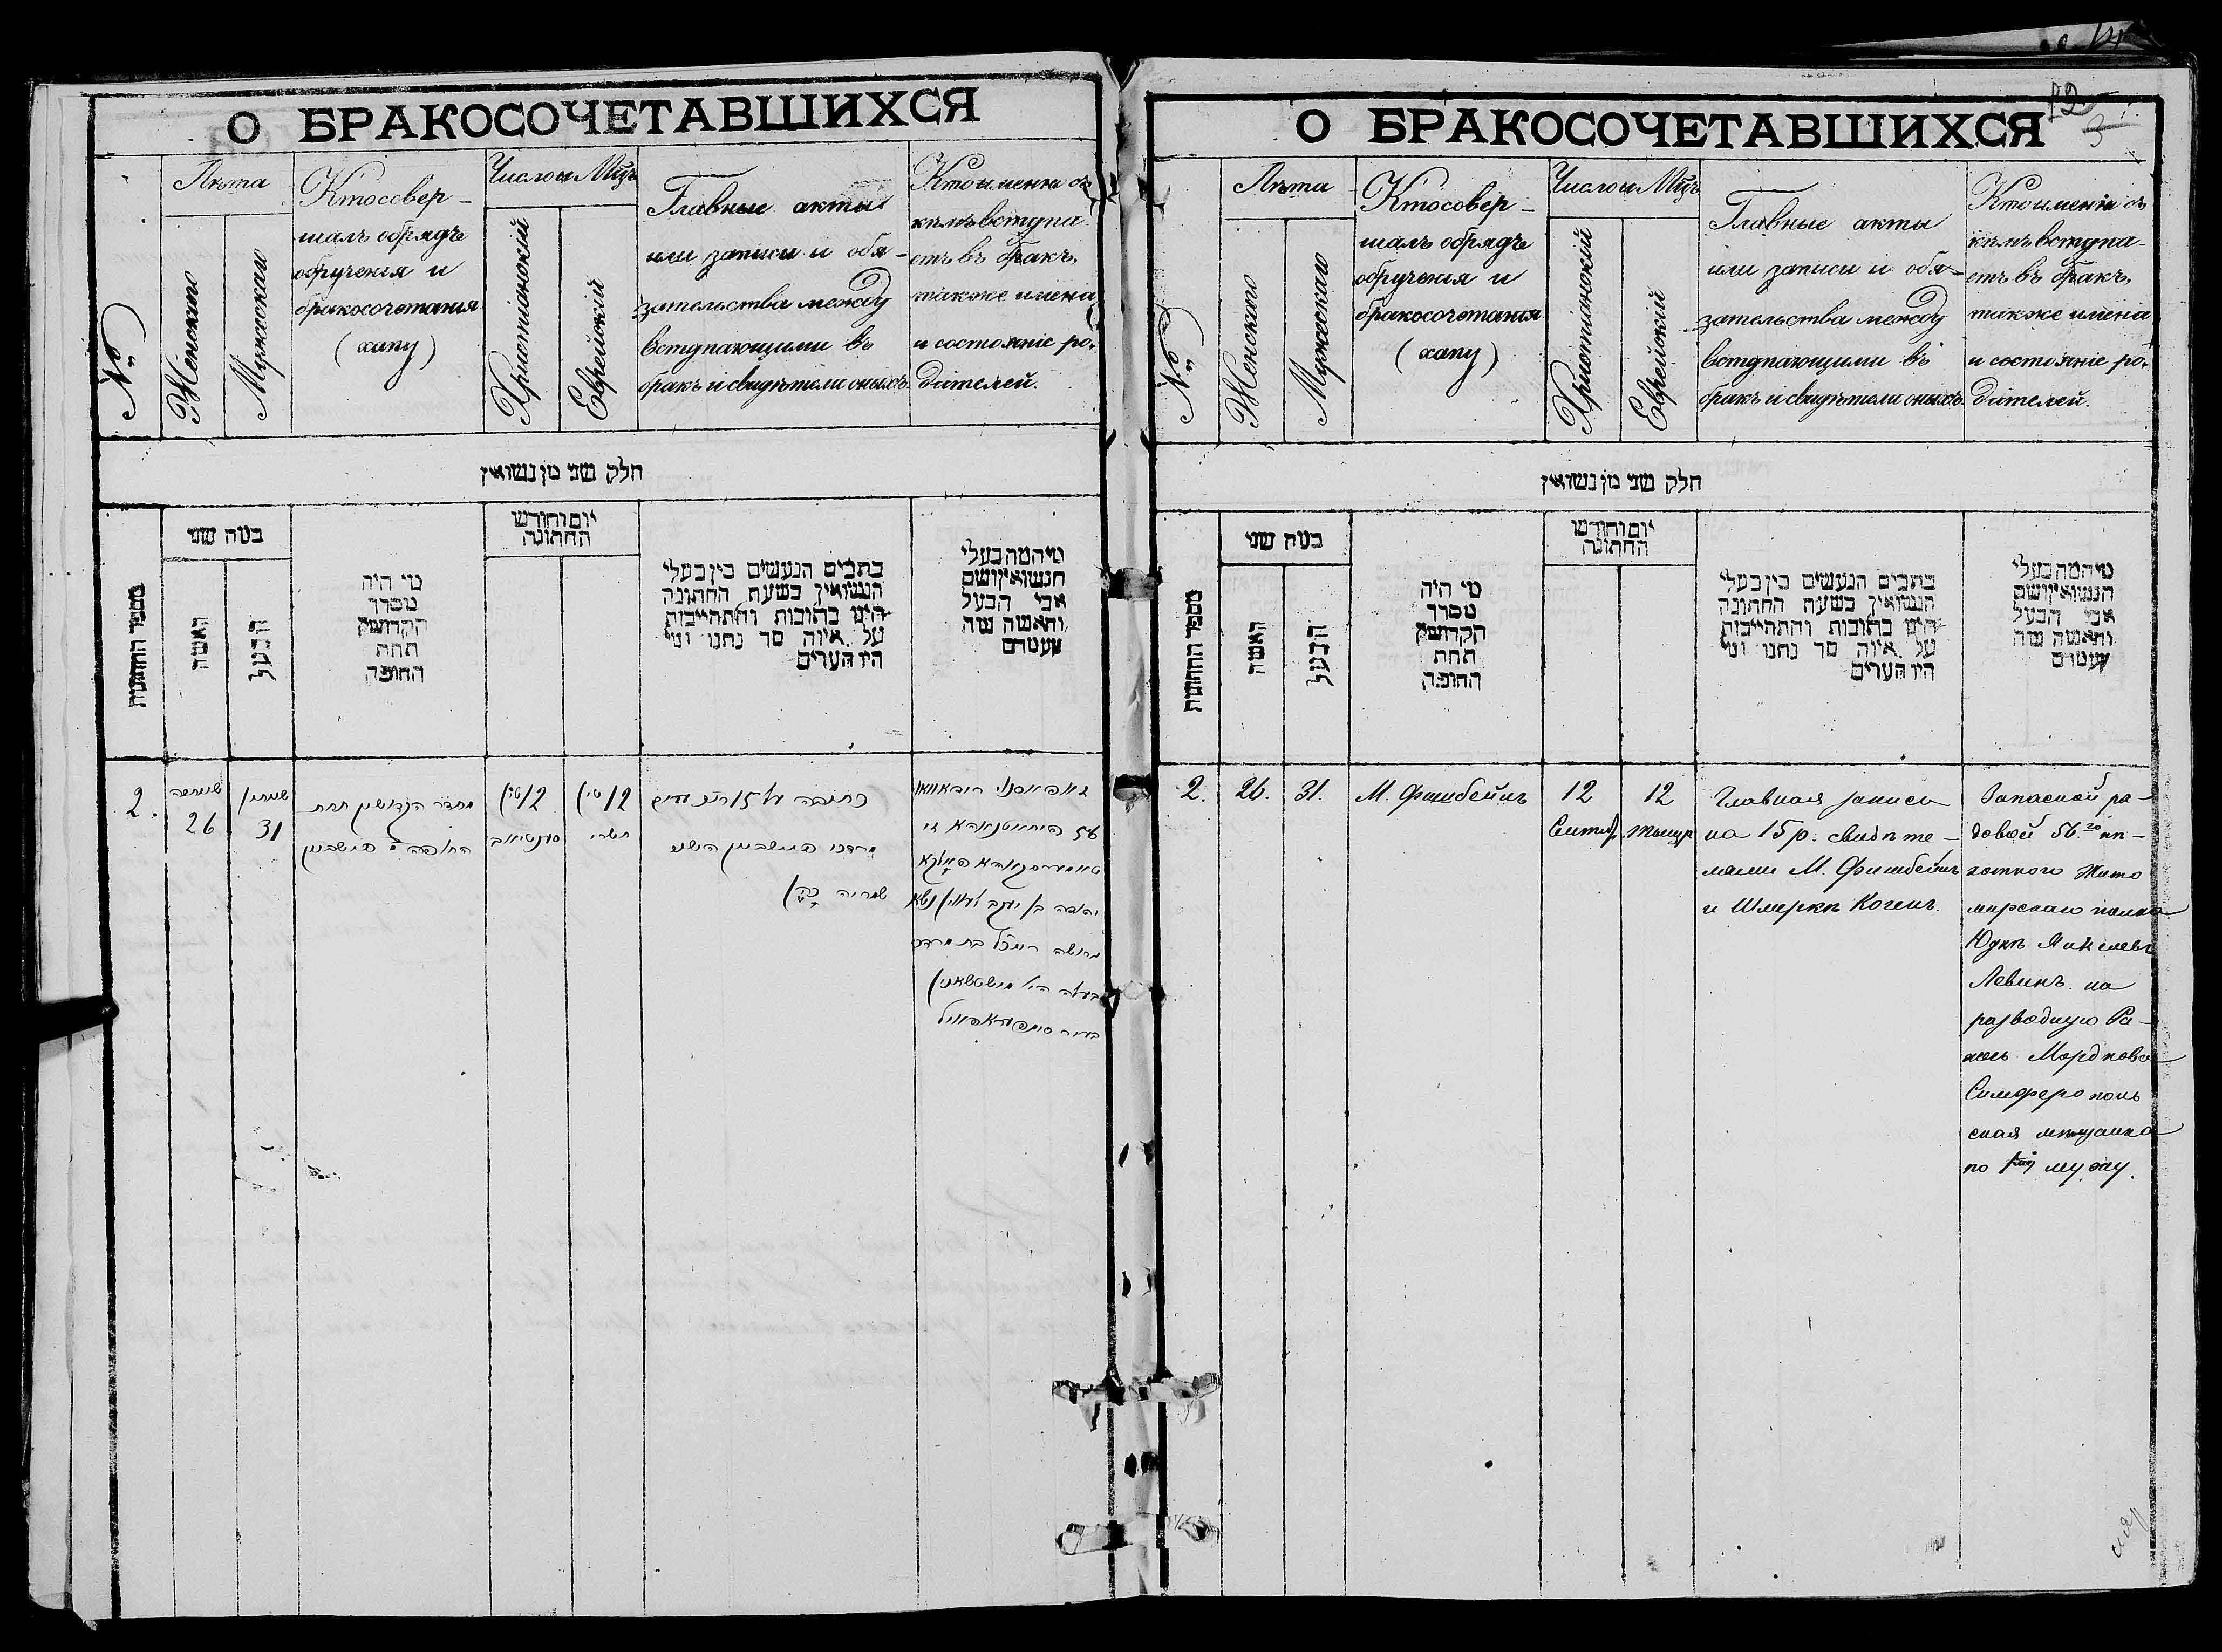 О БРАКОСОЧЕТАВШИХСЯ
№
Лѣта
Женскаго
Мужескаго
Кто совер-
шалъ обрядъ
обрученія и
бракосочетанія
(хапу)
Число и Мцъ
Христіанскій
Еврейскій
Главные акты
или записи и обя-
зательства между
вступающими въ
бракъ и свидѣтели оныхъ.
Кто именно съ
кѣмъ вступа-
етъ въ бракъ,
также имена
и состояніе ро-
дителей.
חלק שני מן נשואין
מספר החתונות
כמה שני
האשה
הבעל
מי היה
מסדר
הקדושין
תחת
החופה
יום וחודש
החתונה
כתבים הנעשים בין בעלי
הנשואין בשעת החתונה
היינו כתובות והתחייבות
על איזה סך נתנו ומי
היו העדים
מי המה בעלי
הנשואין ושם
אבי הבעל
והאשה ומה
מעמדם
2.
26
31
מסדר הקדושין תחת
החופה פישביין
12
12
תשרי
כתובה על 15
מרדכי פישביין
שמריה
יהודה בן יעקב לעווין
גרושה רחל בת מרדכי
О БРАКОСОЧЕТАВШИХСЯ
12
3
№
Лѣта
Женскаго
Мужескаго
Кто совер-
шалъ обрядъ
обрученія и
бракосочетанія
(хапу)
Число и Мцъ
Христіанскій
Еврейскій
Главные акты
или записи и обя-
зательства между
вступающими въ
бракъ и свидѣтели оныхъ.
Кто именно съ
кѣмъ вступа-
етъ въ бракъ,
также имена
и состояніе ро-
дителей.
חלק שני מן נשואין
מספר החתונות
כמה שני
האשה
הבעל
מי היה
מסדר
הקדושין
תחת
החופה
יום וחודש
החתונה
כתבים הנעשים בין בעלי
הנשואין בשעת החתונה
היינו כתובות והתחייבות
על איזה סך נתנו ומי
היו העדים
מי המה בעלי
הנשואין ושם
אבי הבעל
והאשה ומה
מעמדם
2.
26.
31.
М. Фишбейнъ
12
Сентяб.
12
Тишри
Главная запись
на 15 р. свидѣте-
лями М. Фишбейнъ
и Шмерка Когенъ.
Запасной ря-
довой 56го пѣ-
хотного Жито
мирскаго полка
Юдка Янкелевъ
Левинъ на
разводную Ра-
хель Мордкова
Симферополь
ская мѣщанка
по мужу.